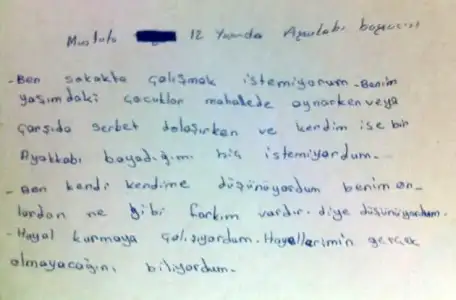 Mustafa 12 Yaşında Ayakkabı boyacısı
-Ben sokakta çalışmak istemiyorum-Benim
yaşımdaki çocuklar mahallede oynarken veya
çarşıda serbet dolaşırken ve kendim ise bir
Ayakkabı boyadığımı hiç istemiyordum-
-Ben kendi kendime düşünüyordum benim on-
lardan ne gibi farkım vardır. diye düşünüyordum.
-Hayal kurmaya çalışıyordum. Hayallerimin gerçek
olmayacağını biliyordum.